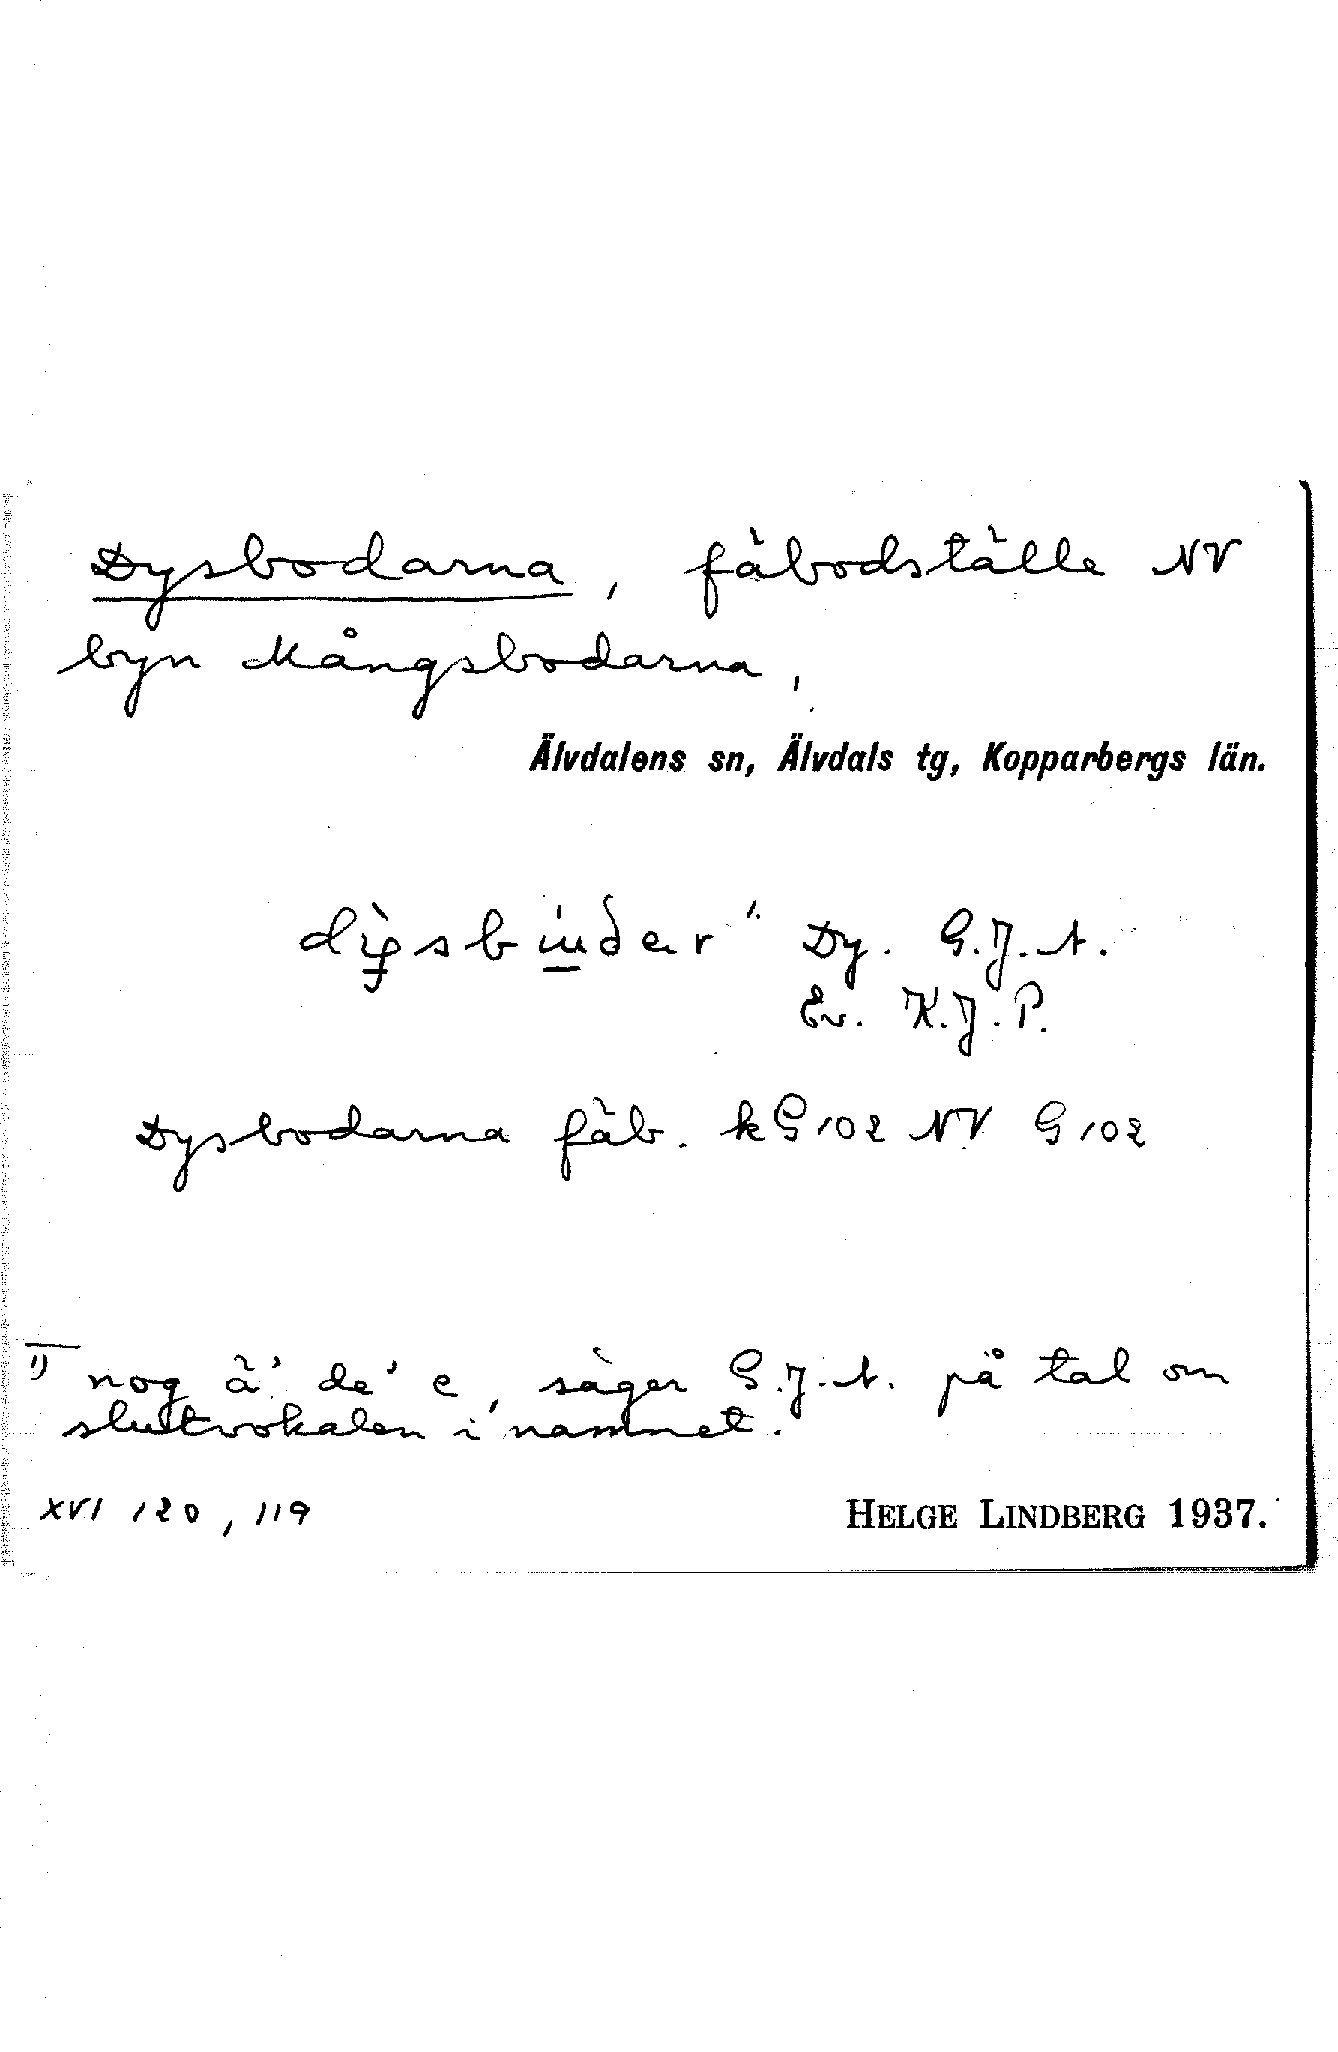 Dysbodarna, fäbodställe NV
byn Mångsbodarna,
Älvdalens sn, Älvdals tg, Kopparbergs län.
Dy. G.J.A.
Ev. K.J.P.
Dysbodarna fäb. kG102 NV G102
1) nog ä' de' e, säger G.J.A. på tal om
slutvokalen i namnet.
XVI 120, 119
HELGE LINDBERG 1937.